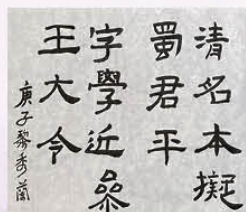 清名本擬
蜀君平
字學近參
王大令
庚子黎秀蘭